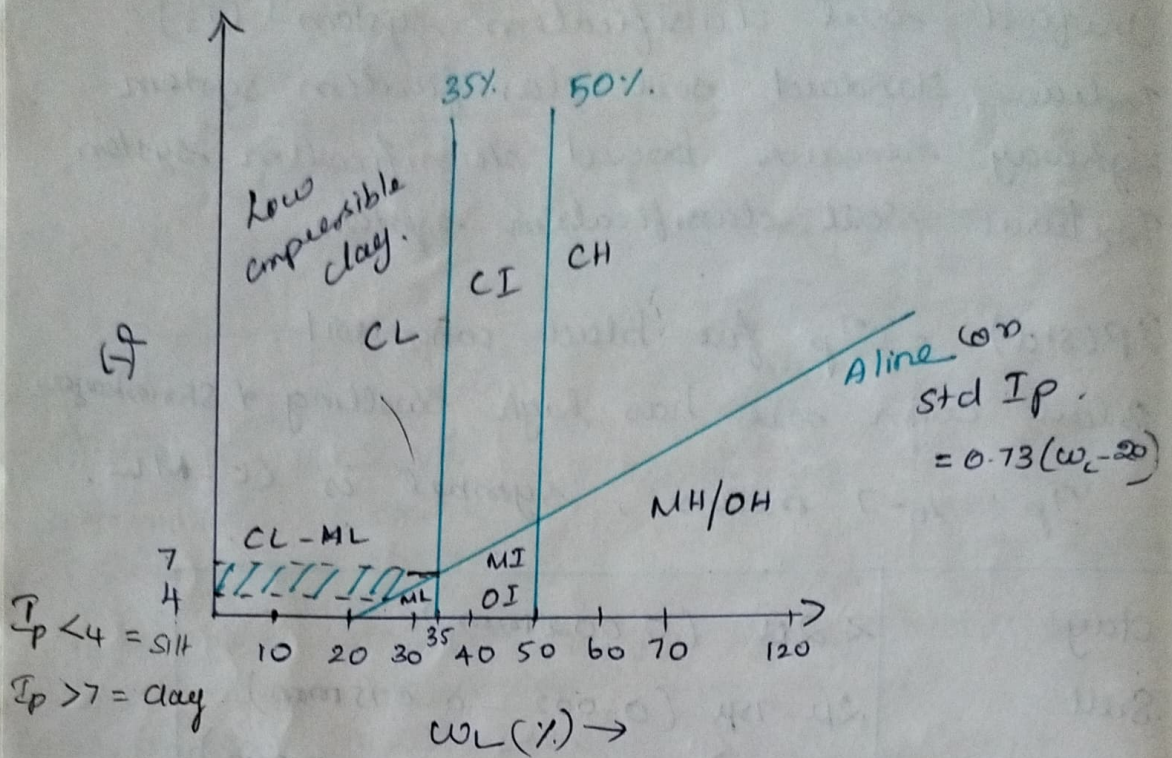 35%
50%.
Low
compressible
clay.
CI
CH
CL
A line (or)
std Ip.
= 0.73(WL-20)
MH/OH
CL-ML
7
4
MI
OI
ML
Ip <4 = silt
Ip >7 = clay
10 20 30 35 40 50 60 70 120
WL (%) →